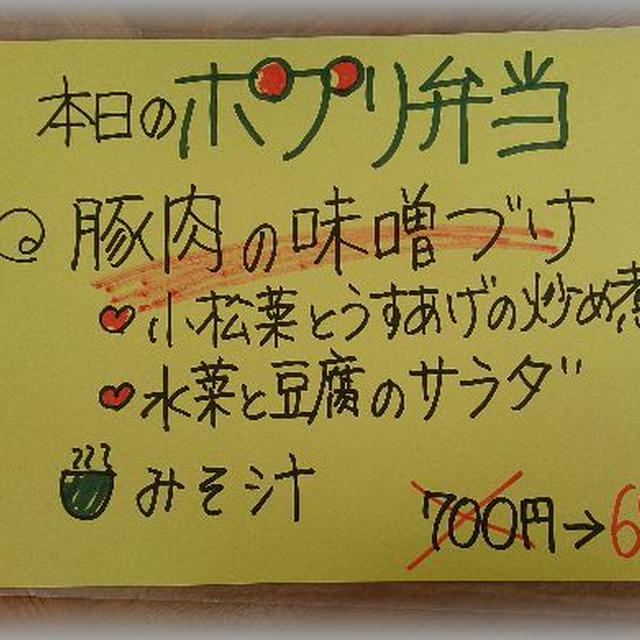 本日のポプリ弁当
豚肉の味噌づけ
小松菜とうすあげの炒め煮
水菜と豆腐のサラダ
みそ汁
700円→6